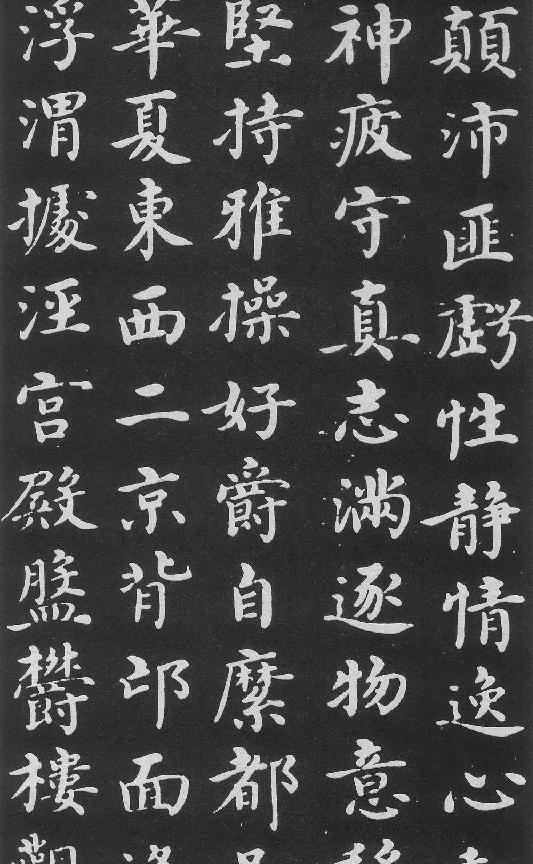 顛沛匪虧性静情逸心
神疲守真志滿逐物意
堅持雅操好爵自縻都
華夏東西二京背邙面
浮渭據涇宫殿盤欝樓觀